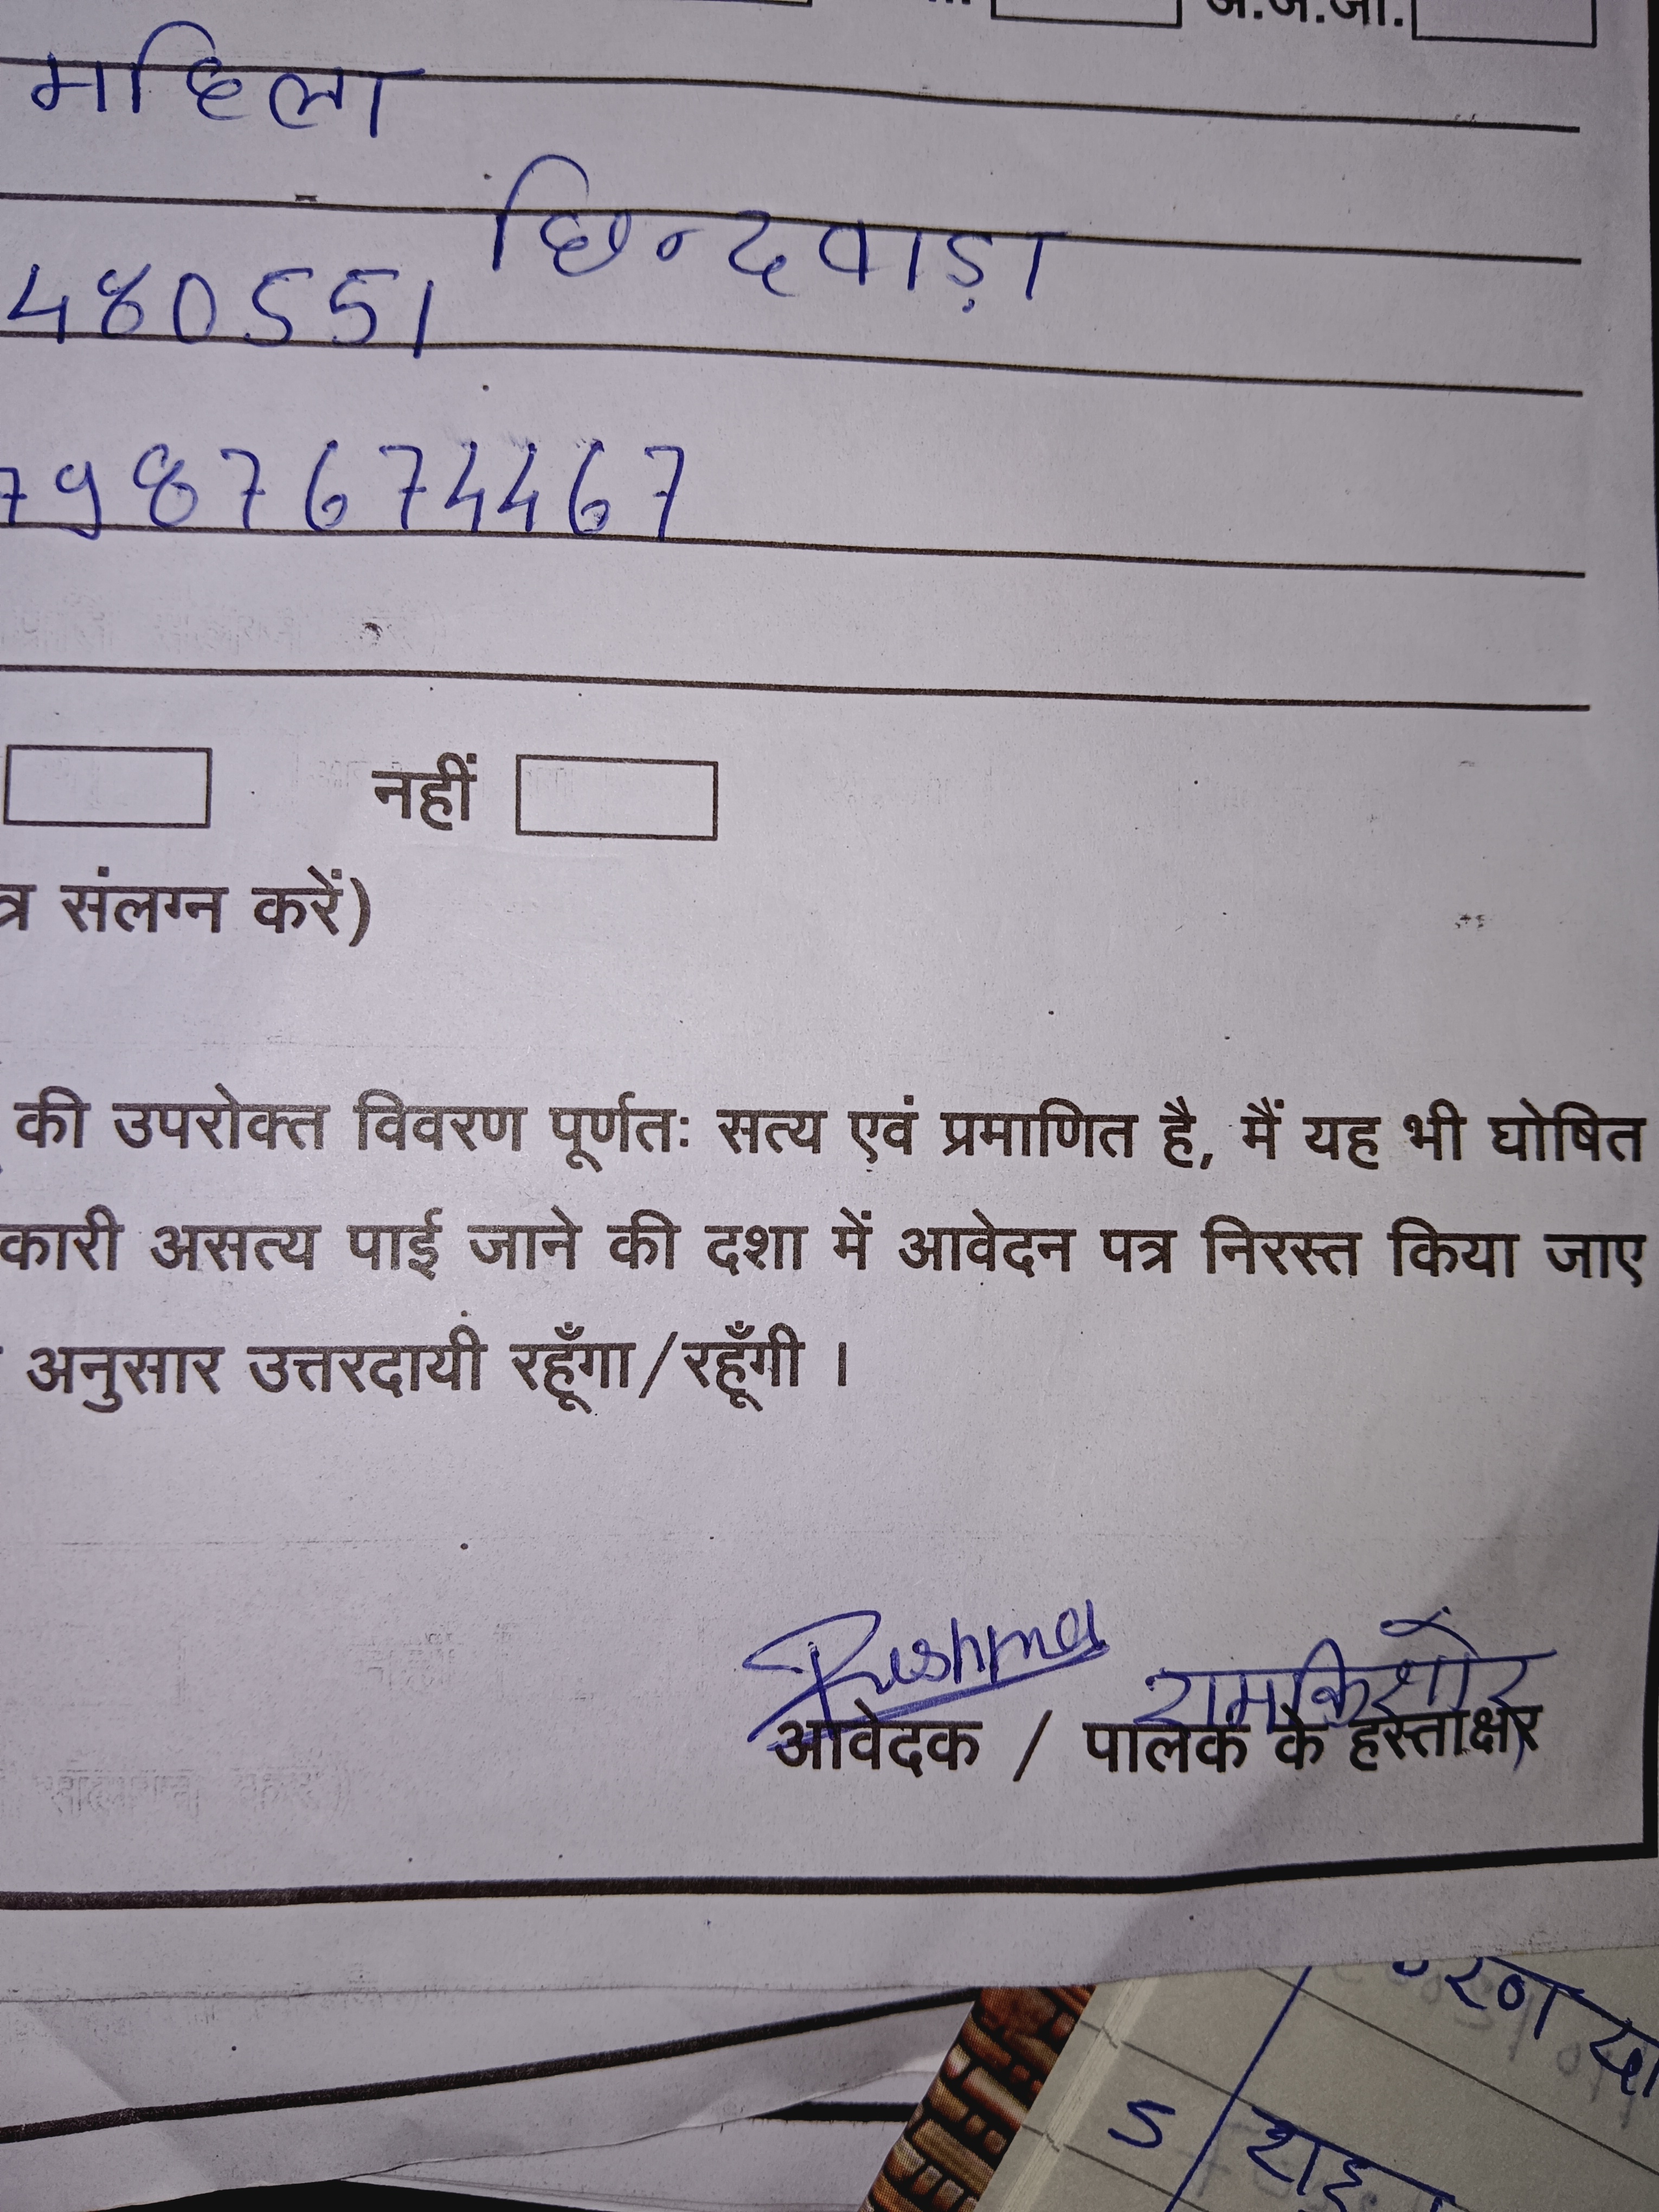 अ.ज.जा.
महिला
छिन्दवाड़ा
480551
7987674467
नहीं
त्र संलग्न करें)
की उपरोक्त विवरण पूर्णतः सत्य एवं प्रमाणित है, मैं यह भी घोषित
कारी असत्य पाई जाने की दशा में आवेदन पत्र निरस्त किया जाए
अनुसार उत्तरदायी रहूँगा/रहूँगी ।
रामकिशोर
आवेदक / पालक के हस्ताक्षर
5